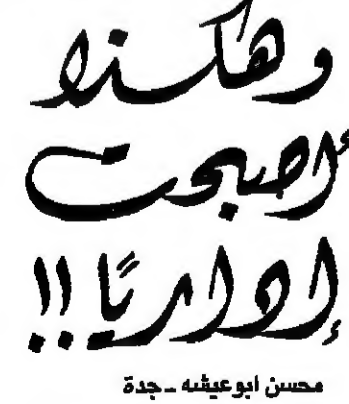 وهكذا
أصبحت
إداريًا !!
محسن ابو عيشه - جدة